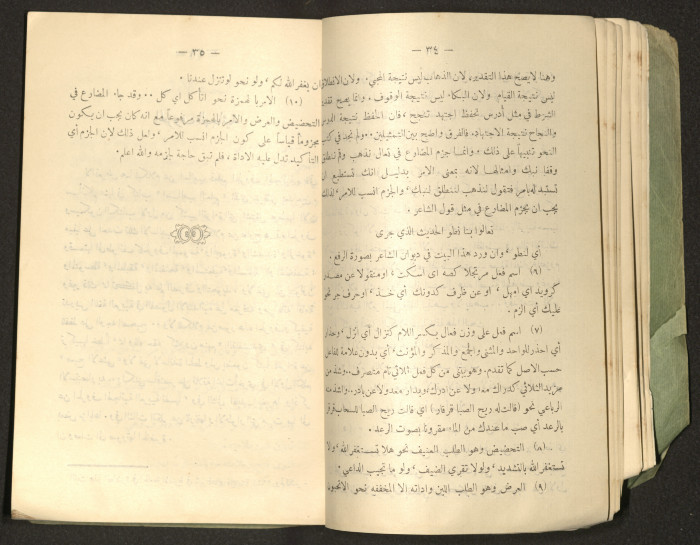 — ٣٤ —
وهنا لا يصح هذا التقدير، لان الذهاب ليس نتيجة المجيء. ولان الانطلاق
ليس نتيجة القيام، ولان البكاء ليس نتيجة الوقوف. وانما يصح تقدير
الشرط في مثل أدرس تحفظ اجتهد تنجح، فان الحفظ نتيجة الدرس
والنجاح نتيجة الاجتهاد، فالفرق واضح بين التمثيلين. ولم نجد في كتب
النحو تنبيهاً على ذلك، وانما جزم المضارع في تعال نذهب وقم ننطلق
وقفا نبك وامثالها لانه بمعنى الامر بدليل انك تستطيع ان
تستبدله بامر فتقول لنذهب لننطلق لنبك، والجزم انسب للامر لذلك
يجب ان يجزم المضارع في مثل قول الشاعر.
تعالوا بنا نطو الحديث الذي جرى
أي لنطو، وان ورد هذا البيت في ديوان الشاعر بصورة الرفع.
(٦) اسم فعل مرتجلا كصه أي اسكت، او منقولا عن مصدر
كرويد اي امهل، او عن ظرف كدونك أي خذ، او حرف جر نحو
عليك أي الزم.
(٧) اسم فعل على وزن فعال بكسر اللام كنزال أي انزل، وحذار
أي احذر للواحد والمثنى والجمع والمذكر والمؤنث، أي بدون علامة للفاعل
حسب الاصل كما تقدم. وهو يبنى من كل فعل ثلاثي تام متصرف، وشذ من
مزيد الثلاثي كدراك معدولا عن ادرك، وبدار معدولا عن بادر، واشذ منه
الرباعي نحو (قالت له ريح الصبا قرقار) اي قالت ريح الصبا للسحاب قرقر
بالرعد أي صب ما عندك من الماء مقرونا بصوت الرعد.
(٨) التحضيض وهو الطلب العنيف نحو هلا تستغفر الله، والا
تستغفر الله بالتشديد، ولولا تقري الضيف، ولو ما تجيب الداعي.
(٩) العرض وهو الطلب اللين واداته الا المخففة نحو الا تحبون
— ٣٥ —
ان يغفر الله لكم، ولو نحو لو تنزل عندنا.
(١٠) الامر بالهمزة نحو أتأكل اي كل.. وقد جاء المضارع في
التحضيض والعرض والامر بالهمزة مرفوعاً مع انه كان يجب ان يكون
مجزوماً قياساً على كون الجزم انسب للامر، ولعل ذلك لان الجزم أي
التأكيد تدل عليه الاداة، فلم تبق حاجة بلزمه والله اعلم.